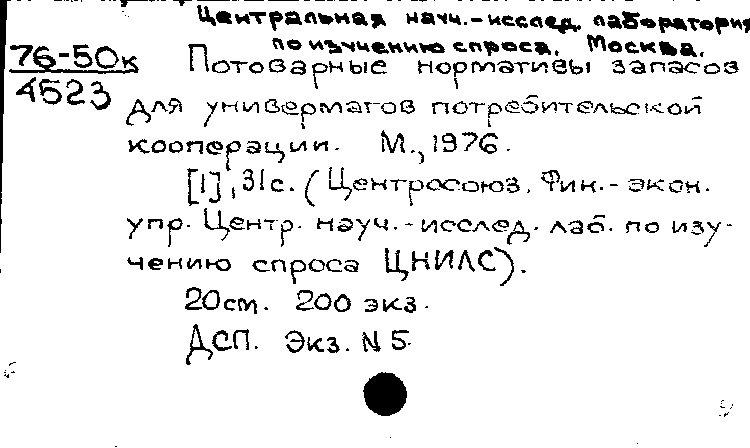 Центральная науч.-исслед. лаборатория
по изучению спроса. Москва.
76-50к
4523
Потоварные нормативы запасов
для универмагов потребительской
кооперации. М., 1976.
[1], 31с. (Центросоюз. Фин.-экон.
упр. Центр. науч.-исслед. лаб. по изу-
чению спроса ЦНИЛС).
20см. 200 экз.
ДСП. Экз. N 5.